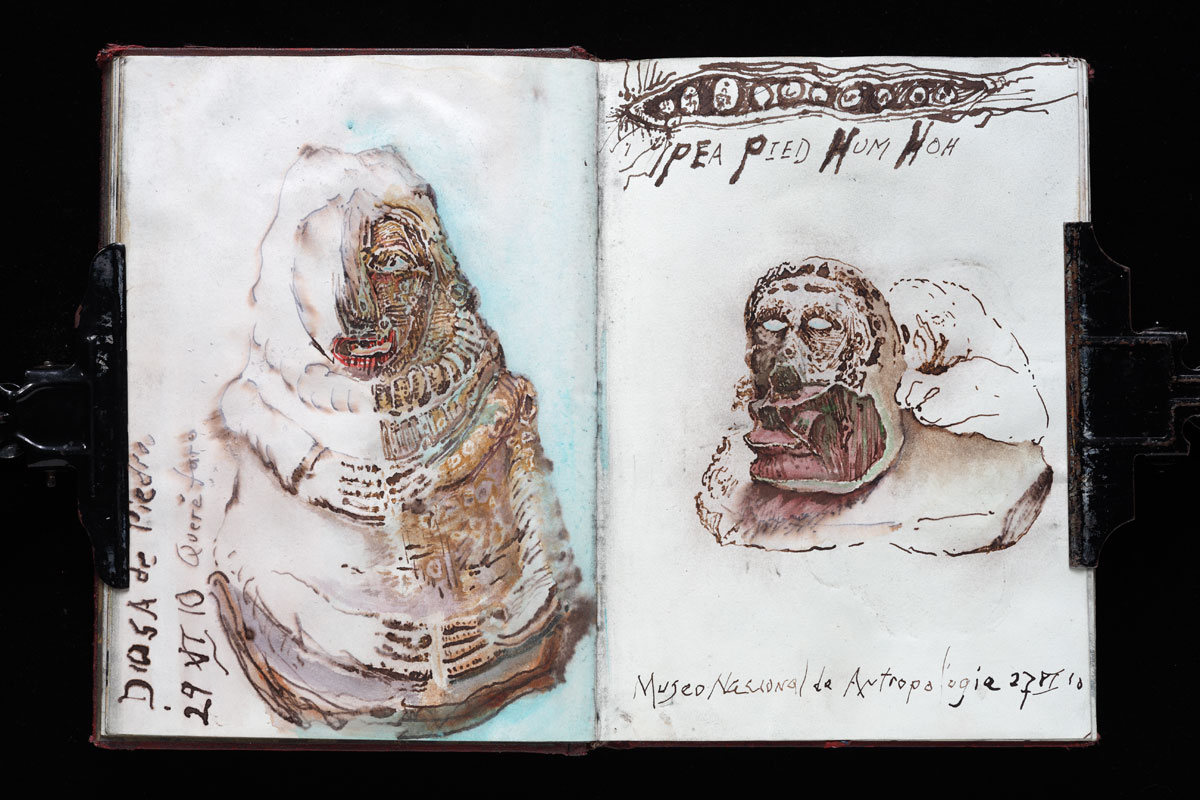 DIOSA de Piedra
29 VI 10 Querétaro
PEA PIED HUM HOH
Museo Nasional de Antropología 27 VI 10